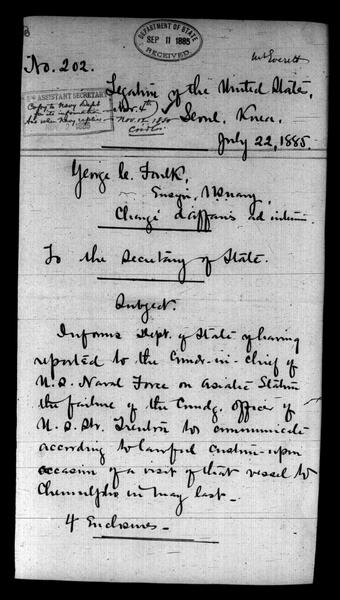 DEPARTMENT OF STATE
SEP 11 1885
RECEIVED
Mr Everett
No. 202.
Legation of the United States,
Seoul, Korea.
July 22, 1885.
ASSISTANT SECRETARY
Copy to Navy Dept
for its information
Nov. 4th
George C. Foulk,
Ensign, U.S. Navy,
Chargé d'affaires ad interim.
To the Secretary of State.
Subject.
Informs Dept. of State of having
reported to the Comdr-in-Chief of
U.S. Naval Force on Asiatic Station
the failure of the Comdg. Officer of
U.S. Str. Trenton to communicate
according to lawful custom upon
occasion of a visit of that vessel to
Chemulpho in May last_
4 Enclosures_